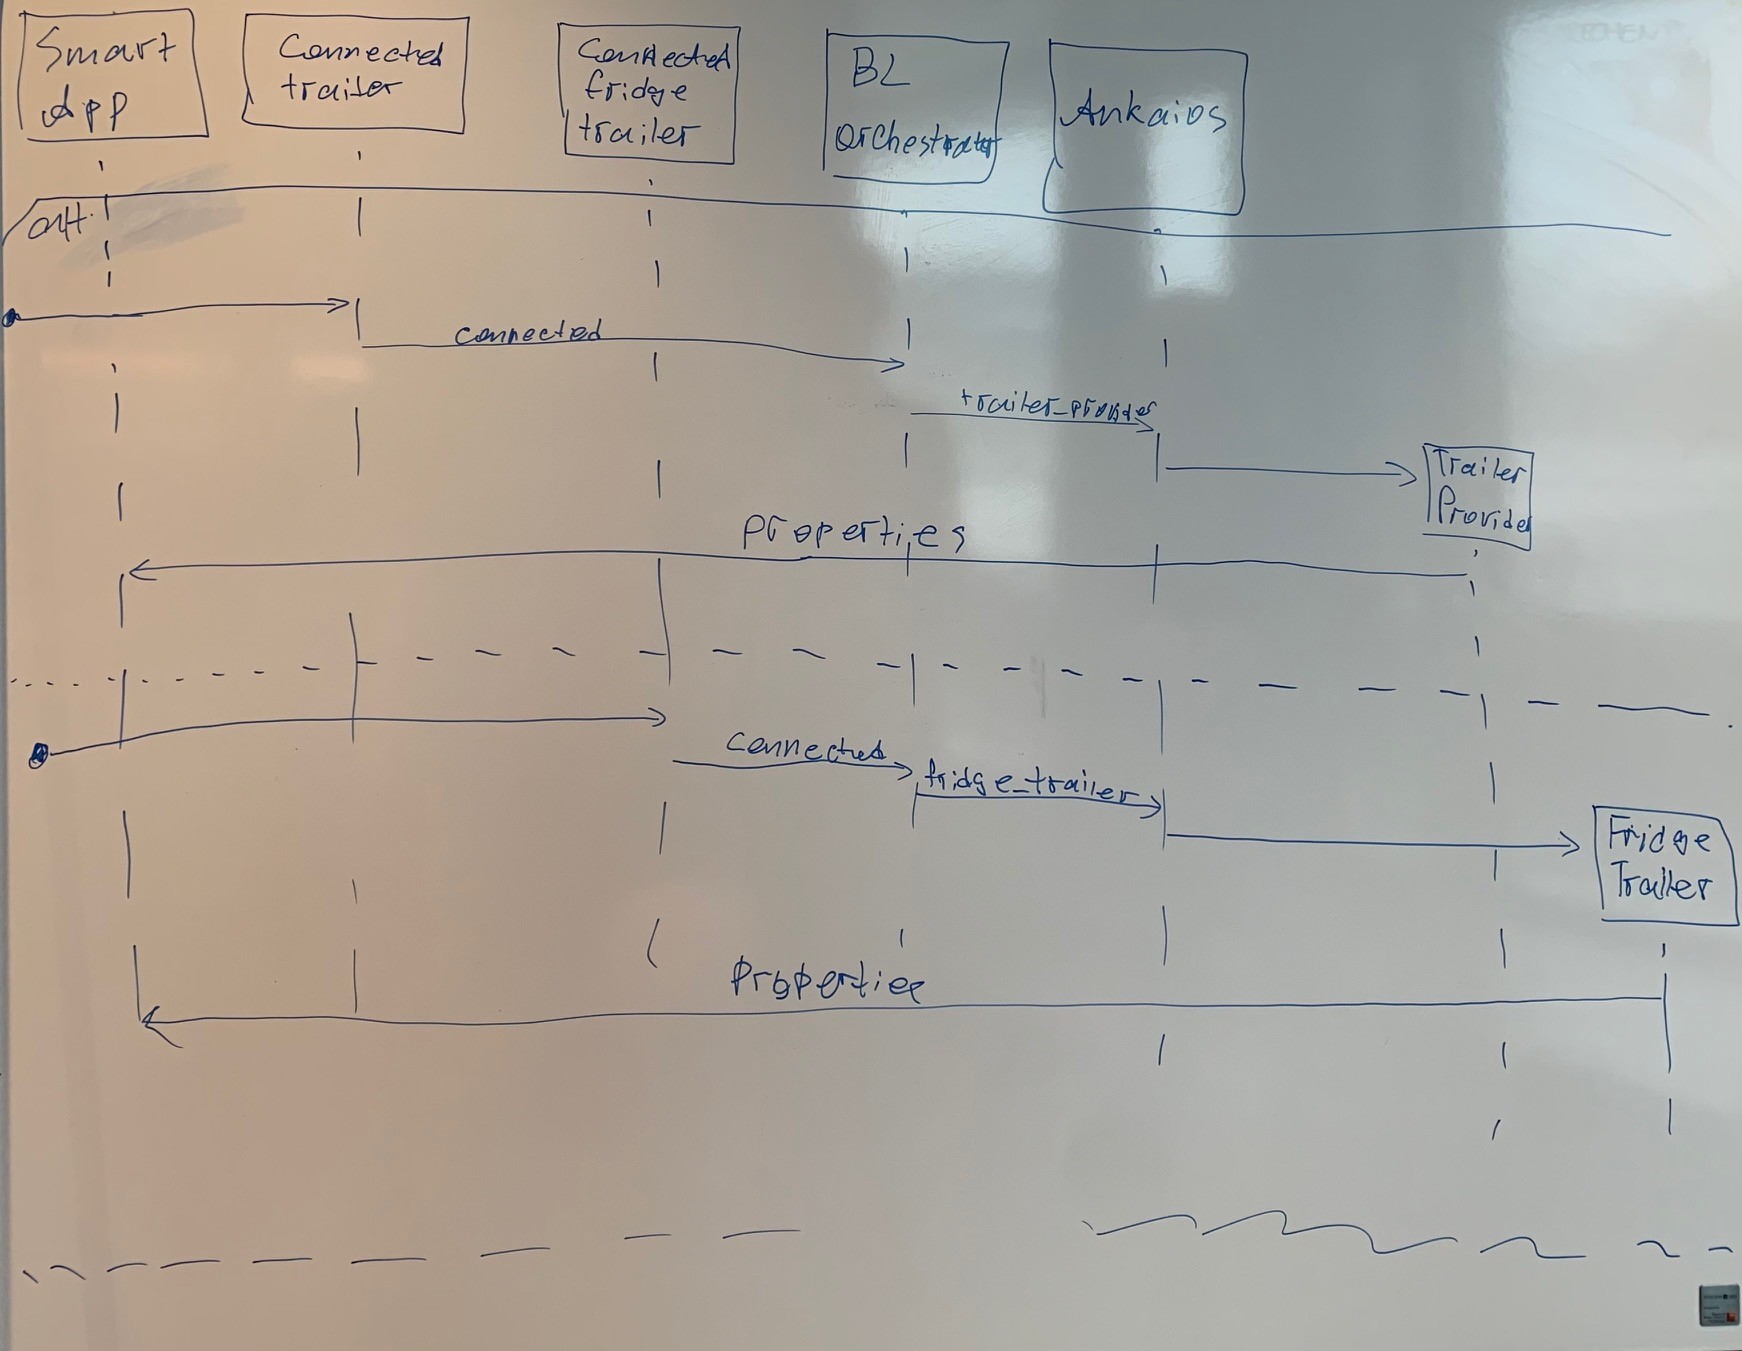 Smart
App
Connected
trailer
Connected
fridge
trailer
BL
Orchestrator
Ankaios
alt
connected
trailer_provider
Trailer
Provider
properties
connected
fridge_trailer
Fridge
Trailer
Properties